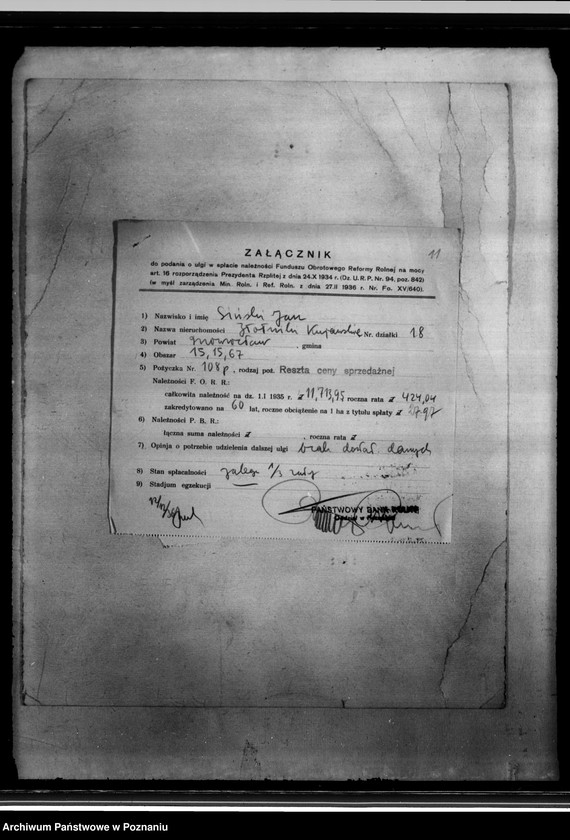 11
ZAŁĄCZNIK
do podania o ulgi w spłacie należności Funduszu Obrotowego Reformy Rolnej na mocy
art. 16 rozporządzenia Prezydenta Rzplitej z dnia 24.X 1934 r. (Dz. U. R. P. Nr. 94, poz. 842)
(w myśl zarządzenia Min. Roln. i Ref. Roln. z dnia 27.II 1936 r. Nr. Fo. XV/640).
1) Nazwisko i imię Siński Jan
2) Nazwa nieruchomości Złotniki Kujawskie Nr. działki 18
3) Powiat Inowrocław, gmina
4) Obszar 15,15,67
5) Pożyczka Nr. 108p, rodzaj poż. Reszta ceny sprzedażnej
Należności F. O. B. R.:
całkowita należność na dz. 1.I 1935 r. zł 11,713,95 roczna rata zł 424,04
zakredytowano na 60 lat, roczne obciążenie na 1 ha z tytułu spłaty zł 27,97
6) Należności P. B. R.:
łączna suma należności zł , roczna rata zł
7) Opinja o potrzebie udzielenia dalszej ulgi brak dostat. danych
8) Stan spłacalności zalega 1/3 raty
9) Stadjum egzekucji —
PAŃSTWOWY BANK ROLNY